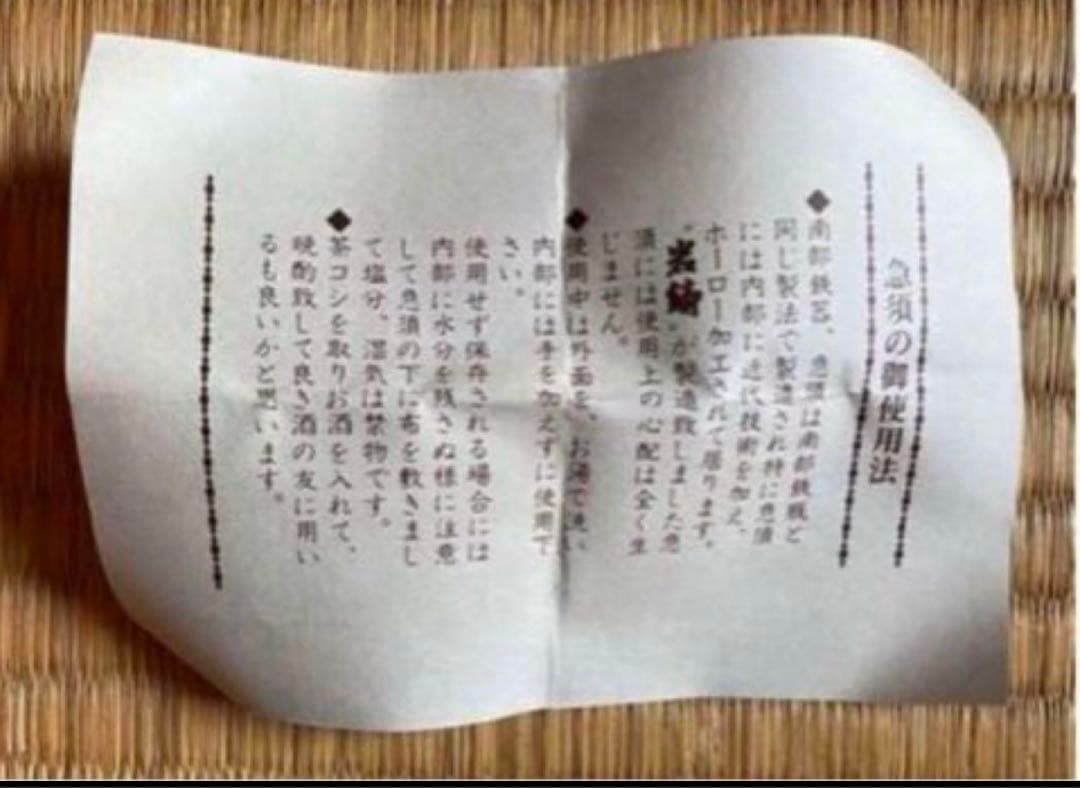 急須の御使用法
◆南部鉄瓶、急須は南部鉄瓶と
同じ製法で製造され特に急須
には内部に近代技術を加え、
ホーロー加工されて居ります。
"岩鋳"が製造致しました急
須には使用上の心配は全く生
じません。
◆使用中は外面を、お湯で洗い
内部には手を加えずに使用下
さい。
使用せず保存される場合には
内部に水分を残さぬ様に注意
して急須の下に布を敷きまし
て塩分、湿気は禁物です。
◆茶コシを取りお酒を入れて、
晩酌致して良き酒の友に用い
るも良いかと思います。